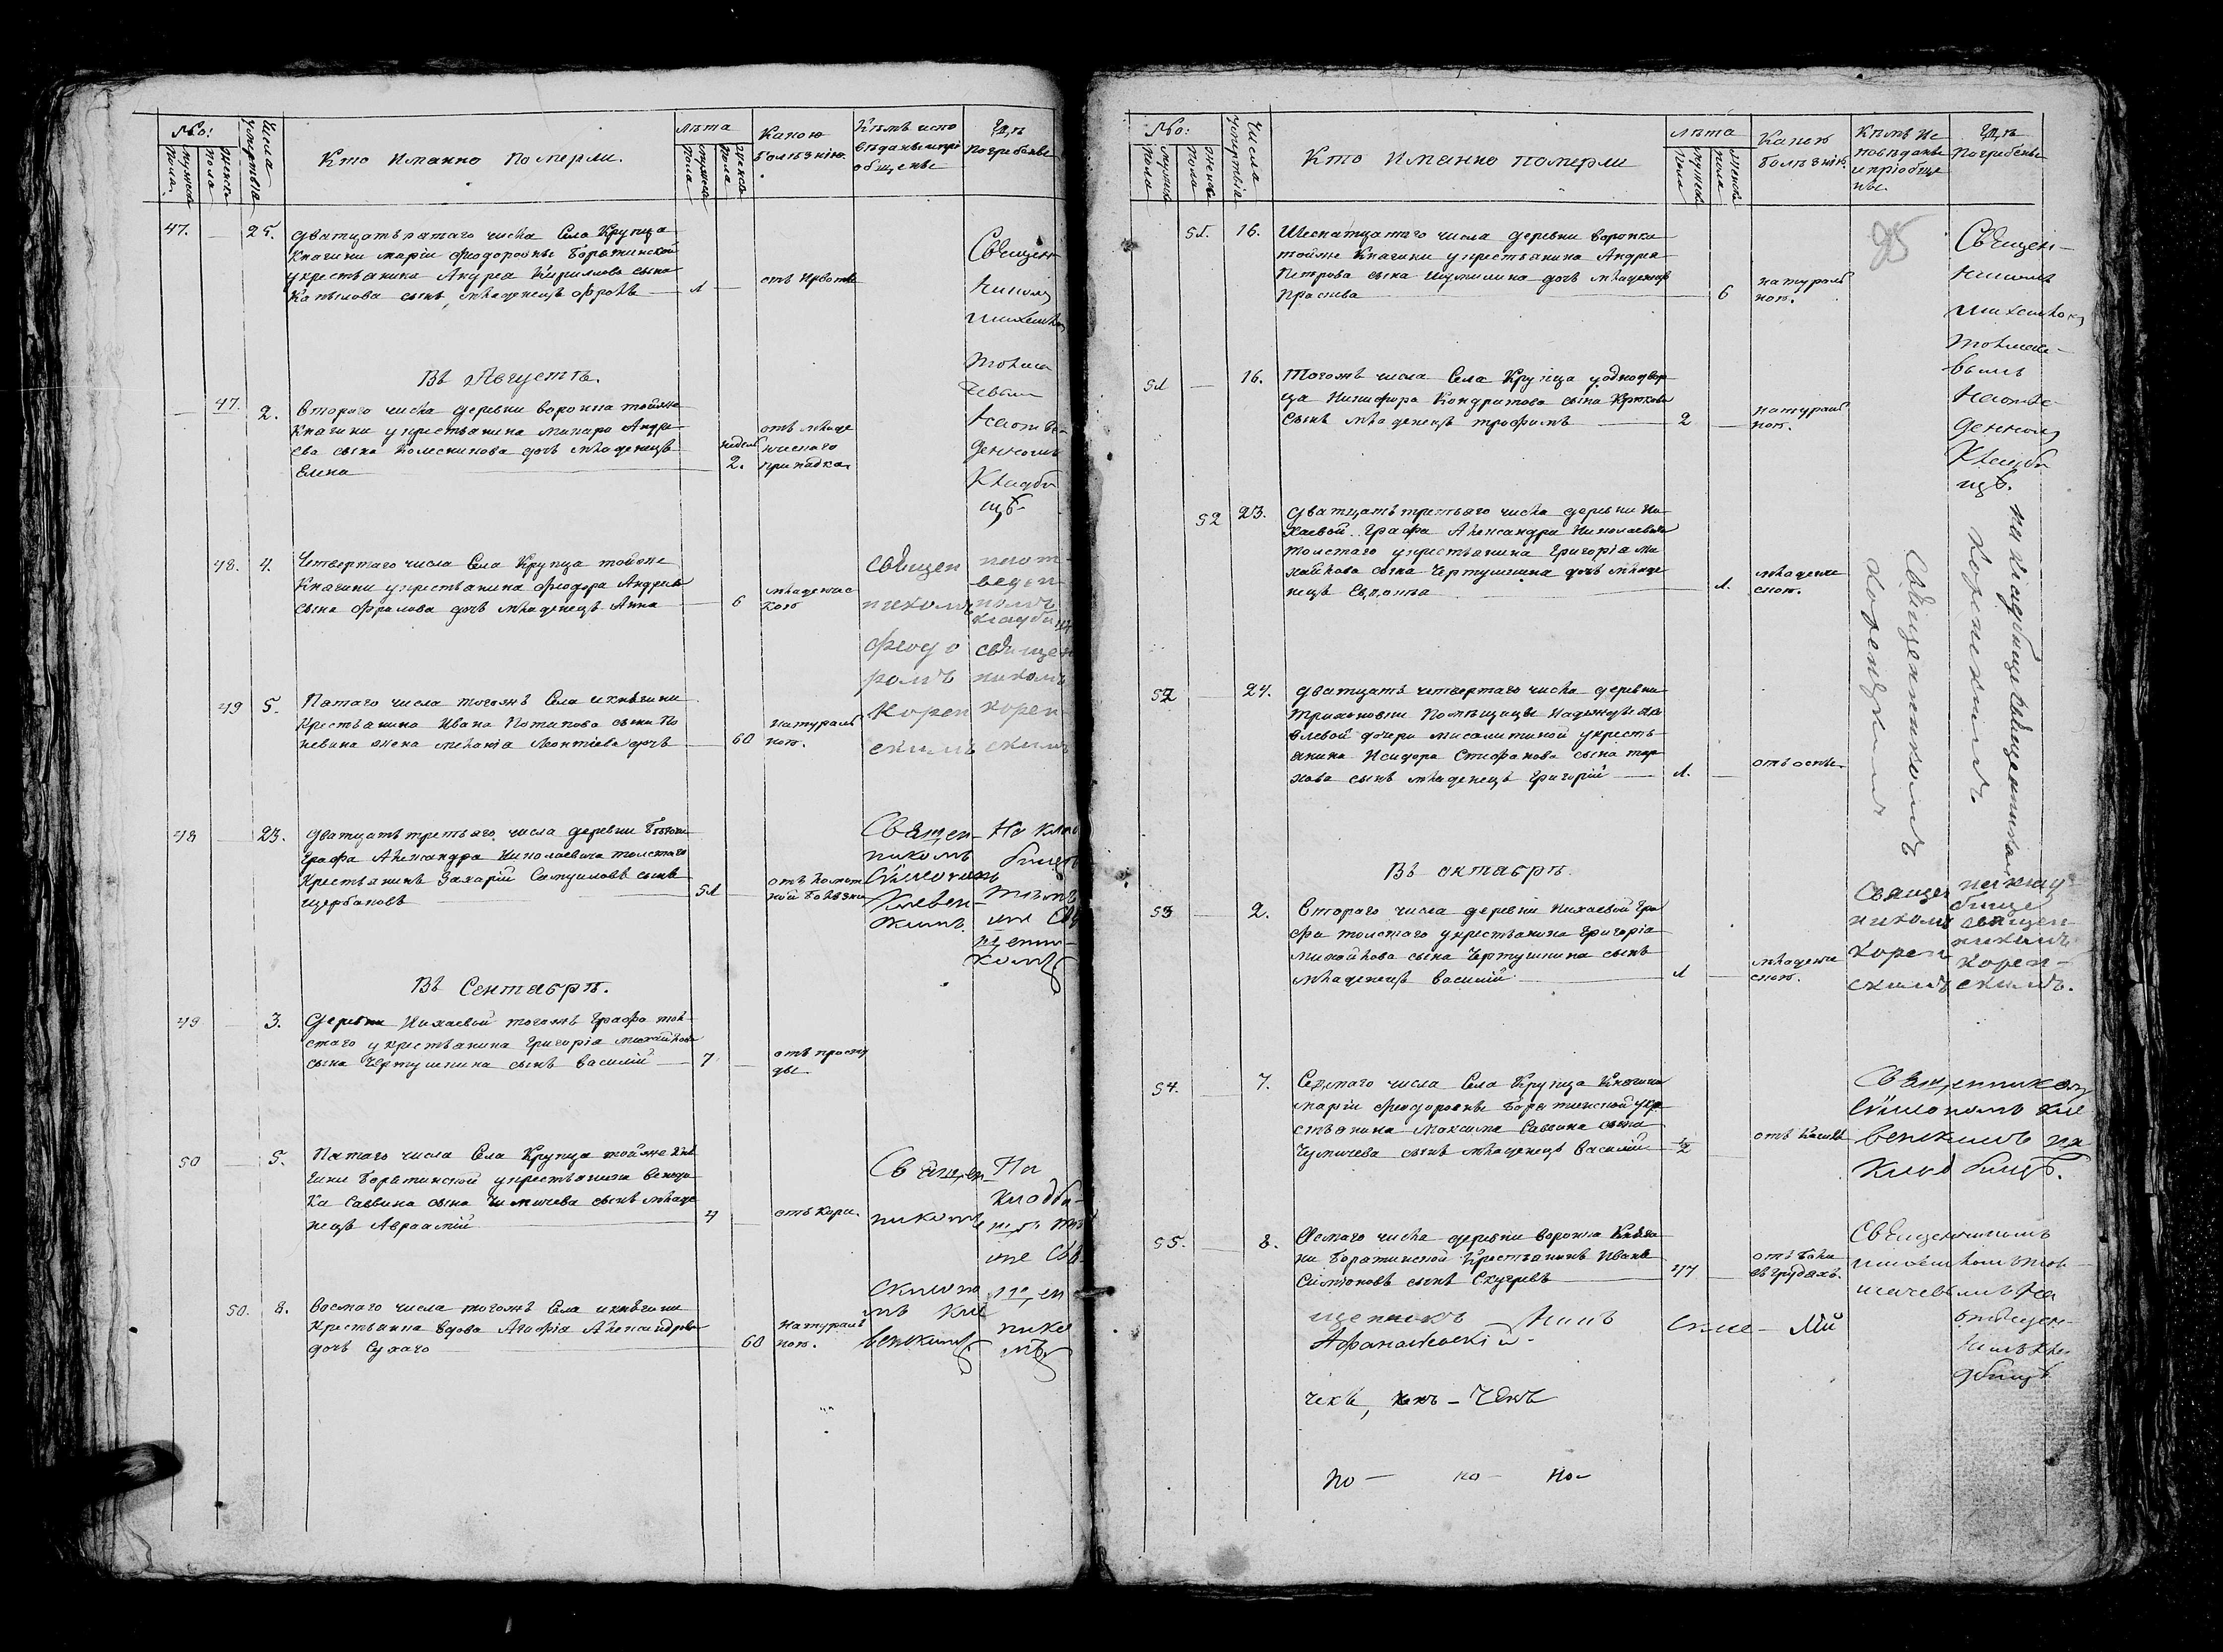 №о:
мужеска пола.
женска пола
Числа успертвія
Кто Иманно Померли.
лѣта
мужеска пола
женска пола
Какою болѣзнію.
Кѣмъ испо
вѣданы и прі
общены
Гдѣ
Погребены
47. — 25. Дватцатьпятаго числа Села Крупца
Княгини маріи Феодоровны Борятинской
у крестьянина Андреа Кирилова сына
Капылова сынъ младенецъ Фролъ — 1 —
отъ
Священ
никомъ
михаиломъ
толма
чевым
на отве
денномъ
кладби
щѣ
Въ Августѣ.
— 47. 2. Втораго числа деревни воронка тойже
Княгини у крестьянина макара Андре
ева сына Колесникова дочь младенецъ
Елена — недель 2.
отъ младе
нческаго
припадка
48. 4. Четвертаго числа Села Крупца тойже
Княгини у крестьянина Феодора Андреева
сына Фролова дочь младенецъ Анна — 6
младенчес
кою
священ
никомъ
феодо
ромъ
корен
скимъ
на от
веден
номъ
кладбищѣ
священ
никомъ
корен
скимъ
49 5. Пятаго числа тогожъ Села и княгини
Крестьянина Ивана Потапова сына По
невина жена меланіа Леонтіева дочь — 60
натураль
ною.
48 — 23. Дватцать третьаго числа деревни
Графа Александра Николаевича толстаго
Крестьянинъ Захарій Самуиловъ сынъ
щербаковъ — 51 —
ной болѣзни
Священ-
никомъ
Сѵмеономъ
Клевен-
скимъ.
На клад
бищѣ
тѣмъ
же Свя
щенни-
комъ
Въ Сентабрѣ.
49 — 3. Деревни Нихаевой тогожъ Графа тол
стаго у крестьянина Григоріа михайлова
сына Чертушкина сынъ василій — 7 —
отъ просту
ды.
50 — 5. Пятаго числа Села Крупца тойже Кня
гини Борятинской у крестьянина
Саввина сына Чумичева сынъ младе
нецъ Авраамій — 4 —
отъ кори.
Священ-
никомъ
Симоно
мъ Кле
венскимъ
На
кладби-
щѣ тѣмъ
же Свя-
щен
нико
мъ
50. 8. Восмаго числа тогожъ Села и княгини
Крестьянка вдова Агафіа Александрова
дочь Сухаго — 60
натураль
ною.
№о:
мужеска пола
женска пола
Числа успертвія
Кто Иманно померли
лѣта
мужеска пола
женска пола
Какою
болѣзнію.
Кѣмъ ис
повѣданы
и пріобще
ны.
Гдѣ
Погребены
51. 16. Шеснатцатаго числа деревни воронка
тойже Княгини у крестьянина Андреа
Петрова сына Шумилина дочь младенецъ
Праскева — 6
натураль
ною.
95
Священ-
никомъ
михаиломъ
толмаче-
вымъ
на отве-
денномъ
кладби
щѣ.
51 — 16. Тогожъ числа Села Крупца у однодвор
ца Никифора Кондратова сына Крюкова
сынъ младенецъ трофимъ — 2 —
натураль
ною.
52 23. Дватцать третьаго числа деревни Ни
хаевой Графа Александра Николаевича
толстаго у крестьянина Григоріа ми
хайлова сына Чертушкина дочь младе
нецъ — 1.
младенче
скою.
Священникомъ
Коренскимъ
на кладбище священникомъ
Коренскимъ.
52 — 24. Дватцать четвертаго числа деревни
трихоновки Помѣщицы Надежды
влевой дочери у кресть
янина Исидора Стефанова сына
хова сынъ младенецъ Григорій — 1. —
отъ оспы.
Въ октабрѣ.
53 — 2. Втораго числа деревни Нихаевой Гра
фа толстаго у крестьянина Григоріа
михайлова сына Чертушкина сынъ
младенецъ василій — 1 —
младенче
скою.
Священ
никомъ
корен
скимъ
на клад
бище
священ
никомъ
корен-
скимъ.
54. — 7. Седмаго числа Села Крупца Княгини
маріи Феодоровны Борятинской у кре
стьянина Максима Саввина сына
Чумичева сынъ младенецъ василій — ½
отъ кашля
Священникомъ
Сѵмеономъ Кле
венскимъ на
кладбищѣ.
55. — 8. Осмаго числа деревни воронка Княги
ни Борятинской Крестьянинъ Иванъ
Симіоновъ сынъ — 47 —
отъ боли
въ грудахъ.
Священникомъ
михаиломъ тол-
мачевымъ на
отведен-
номъ кла
дбищѣ
щенникъ
Афанасьевскій
чекъ,
но — но — но-